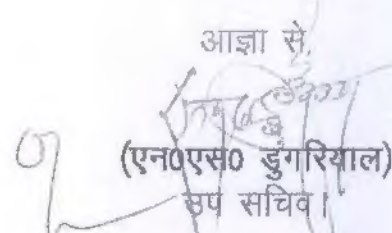 आज्ञा से,
(एन0एस0 डुंगरियाल)
उप सचिव।